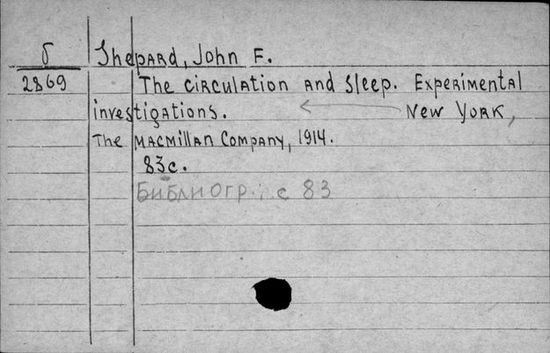 δ Shepard, John F.
2869 The circulation and sleep. Experimental
investigations. New York,
The Macmillan Company, 1914.
83c.
Библиогр.: с 83